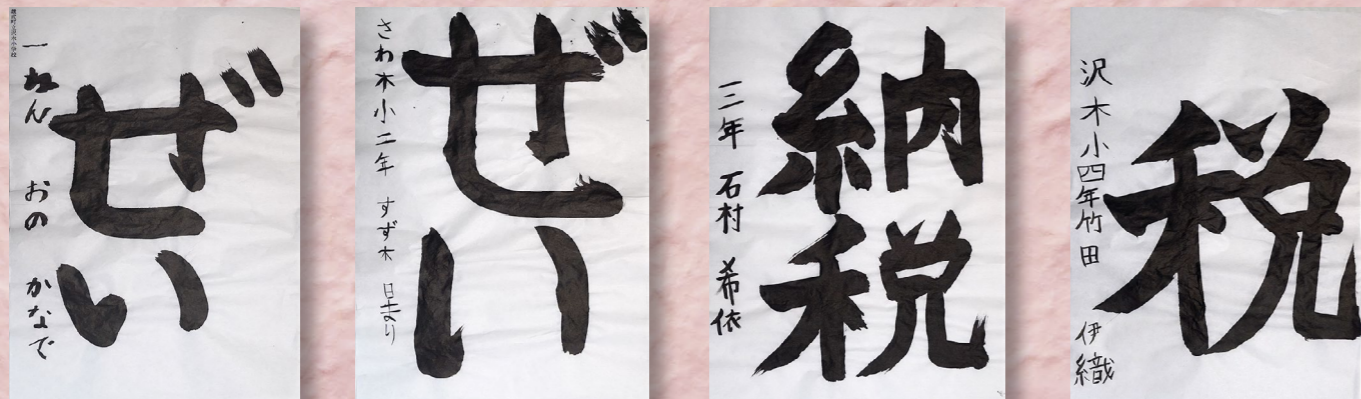 ぜい
一ねん おの かなで
ぜい
さわ木小二年 すず木 日まり
納税
三年 石村 希依
税
沢木小四年竹田 伊織